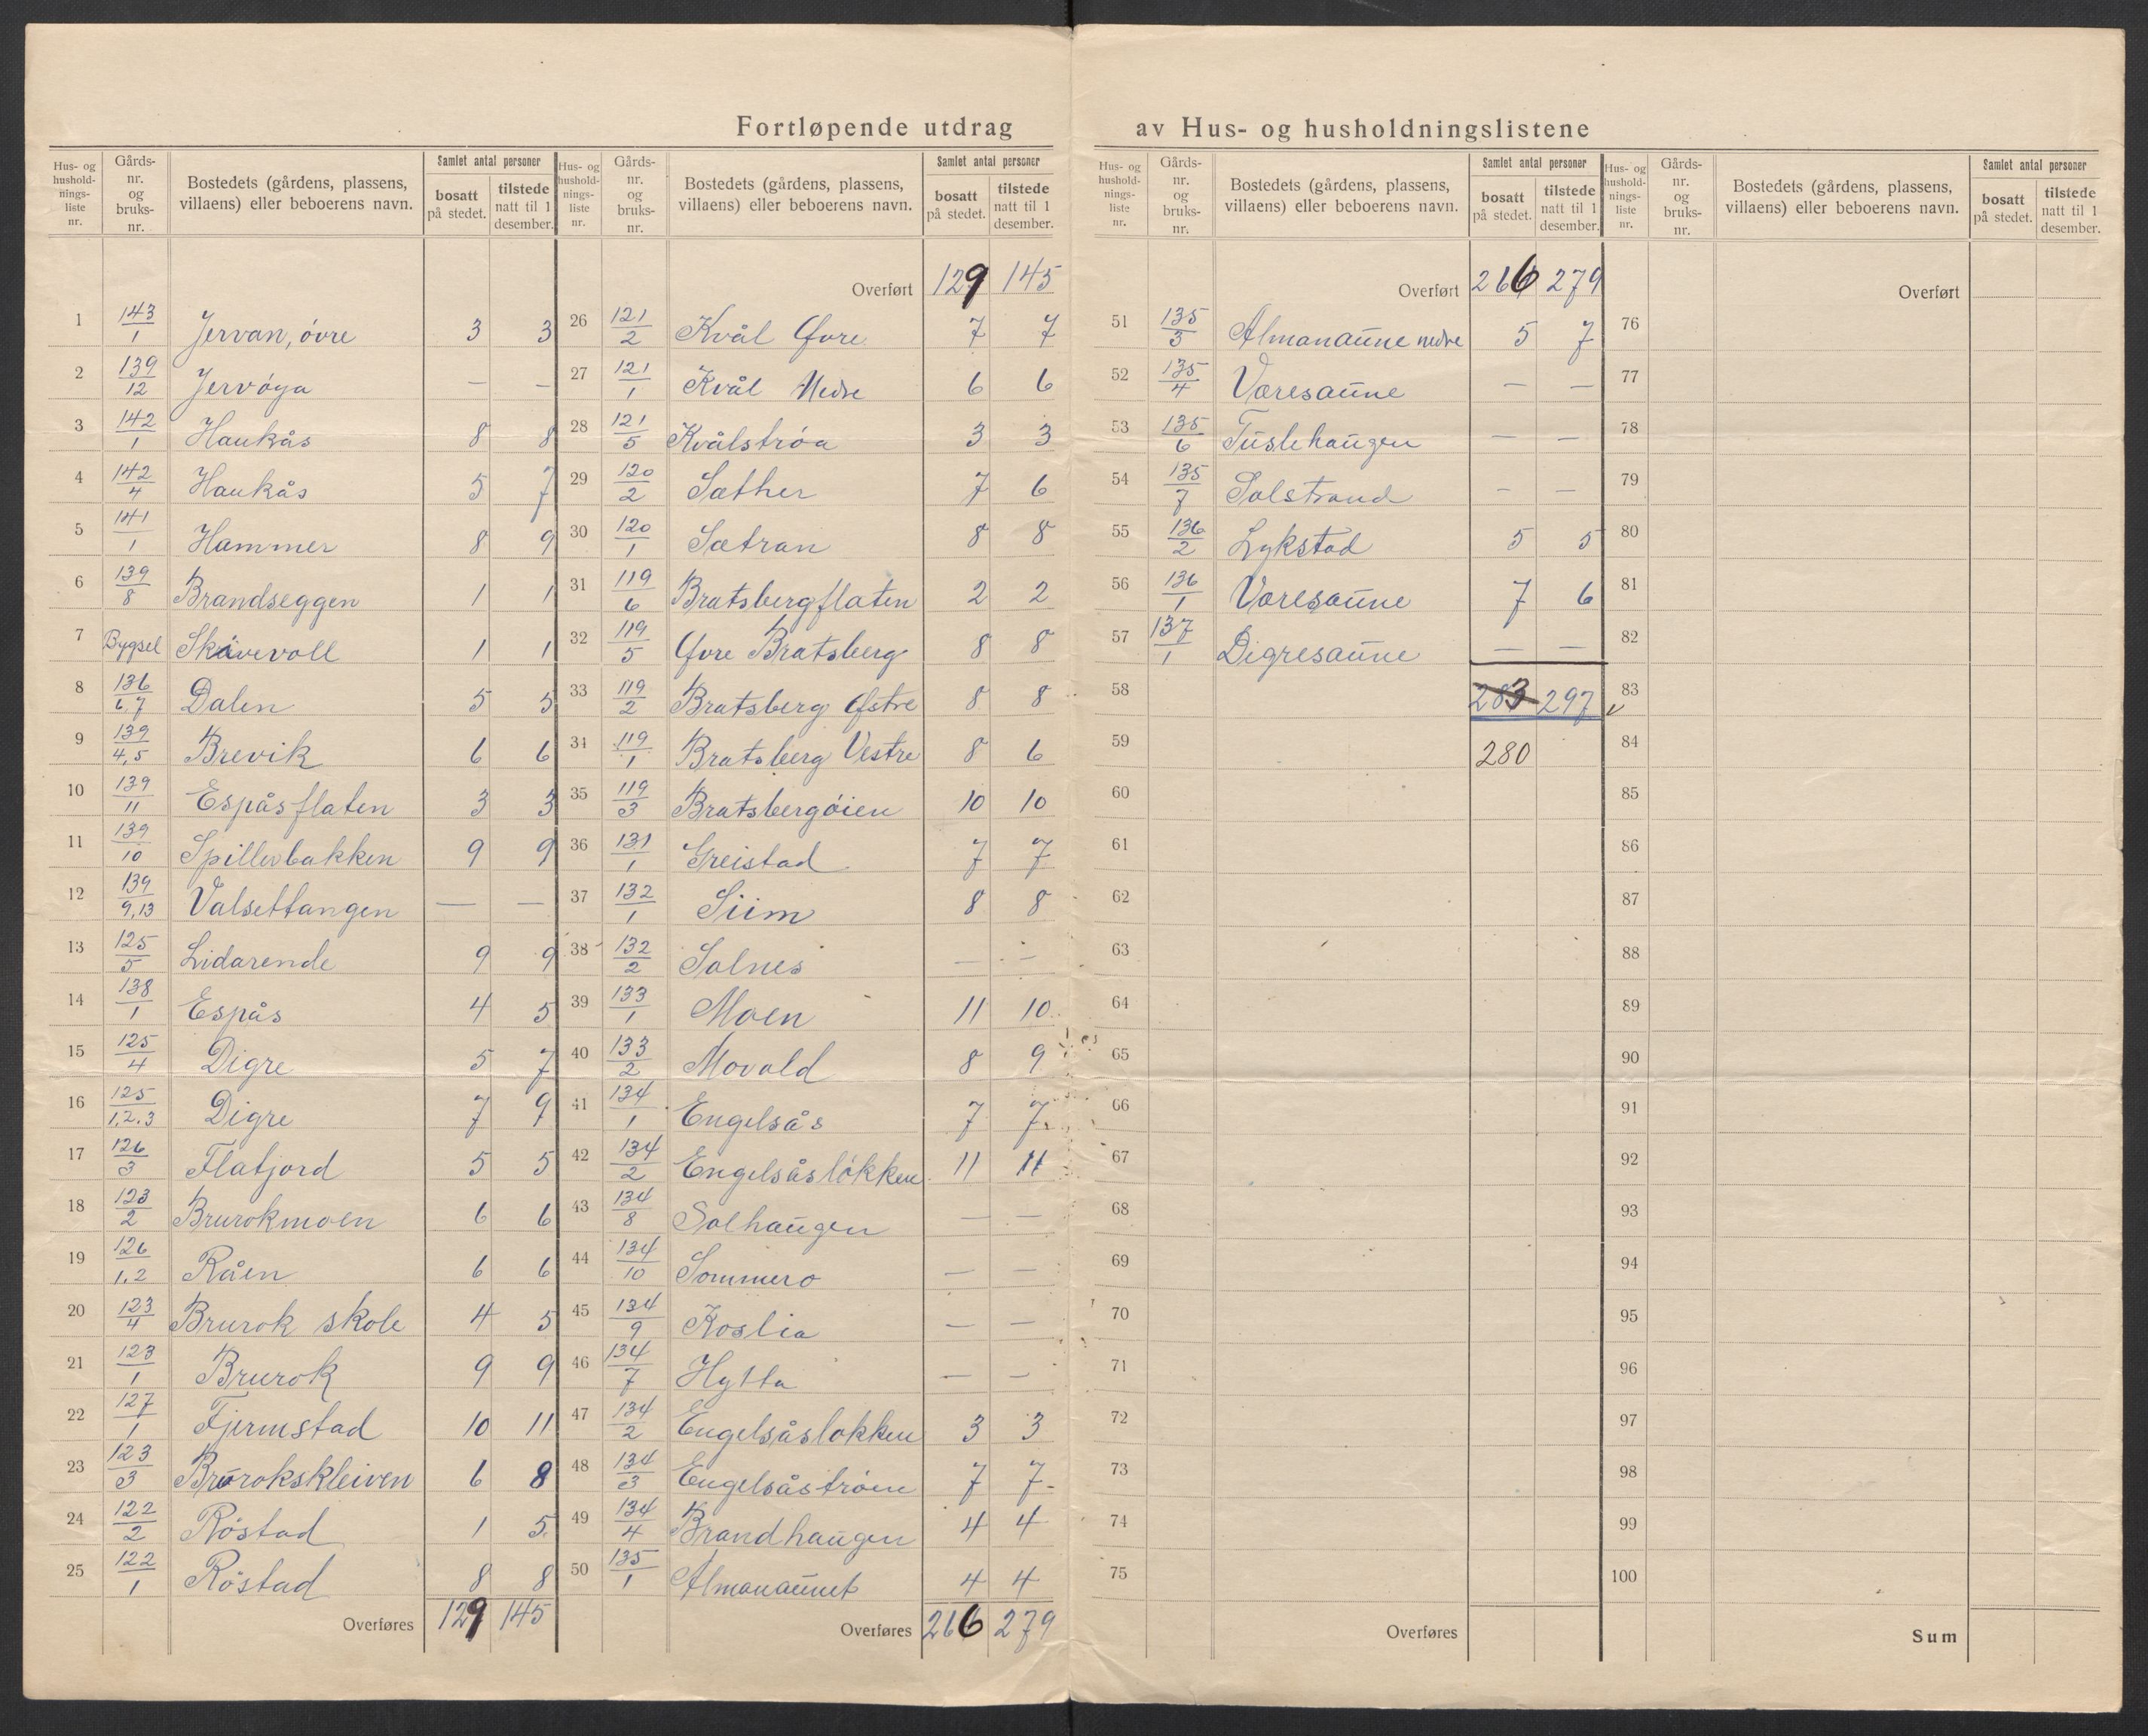 Fortløpende utdrag av Hus- og husholdningslistene
Hus- og hushold-nings-liste nr. | Gårds-nr. og bruks-nr. | Bostedets (gårdens, plassens, villaens) eller beboerens navn. | Samlet antal personer | bosatt på stedet. | tilstede natt til 1 desember.
1 143/1 Jervan, övre 3 3
2 139/12 Jervöya — —
3 142/1 Haukås 8 8
4 142/4 Haukås 5 7
5 141/1 Hammer 8 9
6 139/8 Brandseggen 1 1
7 Bygsel Skåvevoll 1 1
8 136/6,7 Dalen 5 5
9 139/4,5 Brevik 6 6
10 139/11 Espåsflaten 3 3
11 139/10 Spillerbakken 9 9
12 139/9,13 Valsettangen — —
13 125/5 Lidarende 9 9
14 138/1 Espås 4 5
15 125/4 Digre 5 7
16 125/1.2.3 Digre 7 9
17 126/3 Flatjord 5 5
18 123/2 Brurokmoen 6 6
19 126/1.2 Råen 6 6
20 123/4 Brurok skole 4 5
21 123/1 Brurok 9 9
22 127/1 Fjermstad 10 11
23 123/3 Brurokskleiven 6 8
24 122/2 Röstad 1 5
25 122/1 Röstad 8 8
Overføres 129 145
Hus- og hushold-nings-liste nr. | Gårds-nr. og bruks-nr. | Bostedets (gårdens, plassens, villaens) eller beboerens navn. | Samlet antal personer | bosatt på stedet. | tilstede natt til 1 desember.
Overført 129 145
26 121/2 Kvål Øvre 7 7
27 121/1 Kvål Nedre 6 6
28 121/5 Kvålströa 3 3
29 120/2 Sæther 7 6
30 120/1 Sætran 8 8
31 119/6 Bratsbergflaten 2 2
32 119/5 Øvre Bratsberg 8 8
33 119/2 Bratsberg Østre 8 8
34 119/1 Bratsberg Vestre 8 6
35 119/3 Bratsbergöien 10 10
36 131/1 Greistad 7 7
37 132/1 Siim 8 8
38 132/2 Solnes — —
39 133/1 Moen 11 10
40 133/2 Movold 8 9
41 134/1 Engelsås 7 7
42 134/2 Engelsåslökken 11 11
43 134/8 Solhaugen — —
44 134/10 Sommero — —
45 134/9 Koslia — —
46 134/7 Hytta — —
47 134/2 Engelsåslokken 3 3
48 134/3 Engelsåströen 7 7
49 134/4 Brandhaugen 4 4
50 135/1 Almanaunet 4 4
Overføres 266 279
Hus- og hushold-nings-liste nr. | Gårds-nr. og bruks-nr. | Bostedets (gårdens, plassens, villaens) eller beboerens navn. | Samlet antal personer | bosatt på stedet. | tilstede natt til 1 desember.
Overført 266 279
51 135/3 Almanaune nedre 5 7
52 135/4 Voresaune — —
53 135/6 Tuslehaugen — —
54 135/7 Solstrand — —
55 136/2 Lykstad 5 5
56 136/1 Voresaune 7 6
57 137/1 Digresaune — —
58 283 297
59 280
60
61
62
63
64
65
66
67
68
69
70
71
72
73
74
75
Overføres
Hus- og hushold-nings-liste nr. | Gårds-nr. og bruks-nr. | Bostedets (gårdens, plassens, villaens) eller beboerens navn. | Samlet antal personer | bosatt på stedet. | tilstede natt til 1 desember.
Overført
76
77
78
79
80
81
82
83
84
85
86
87
88
89
90
91
92
93
94
95
96
97
98
99
100
Sum